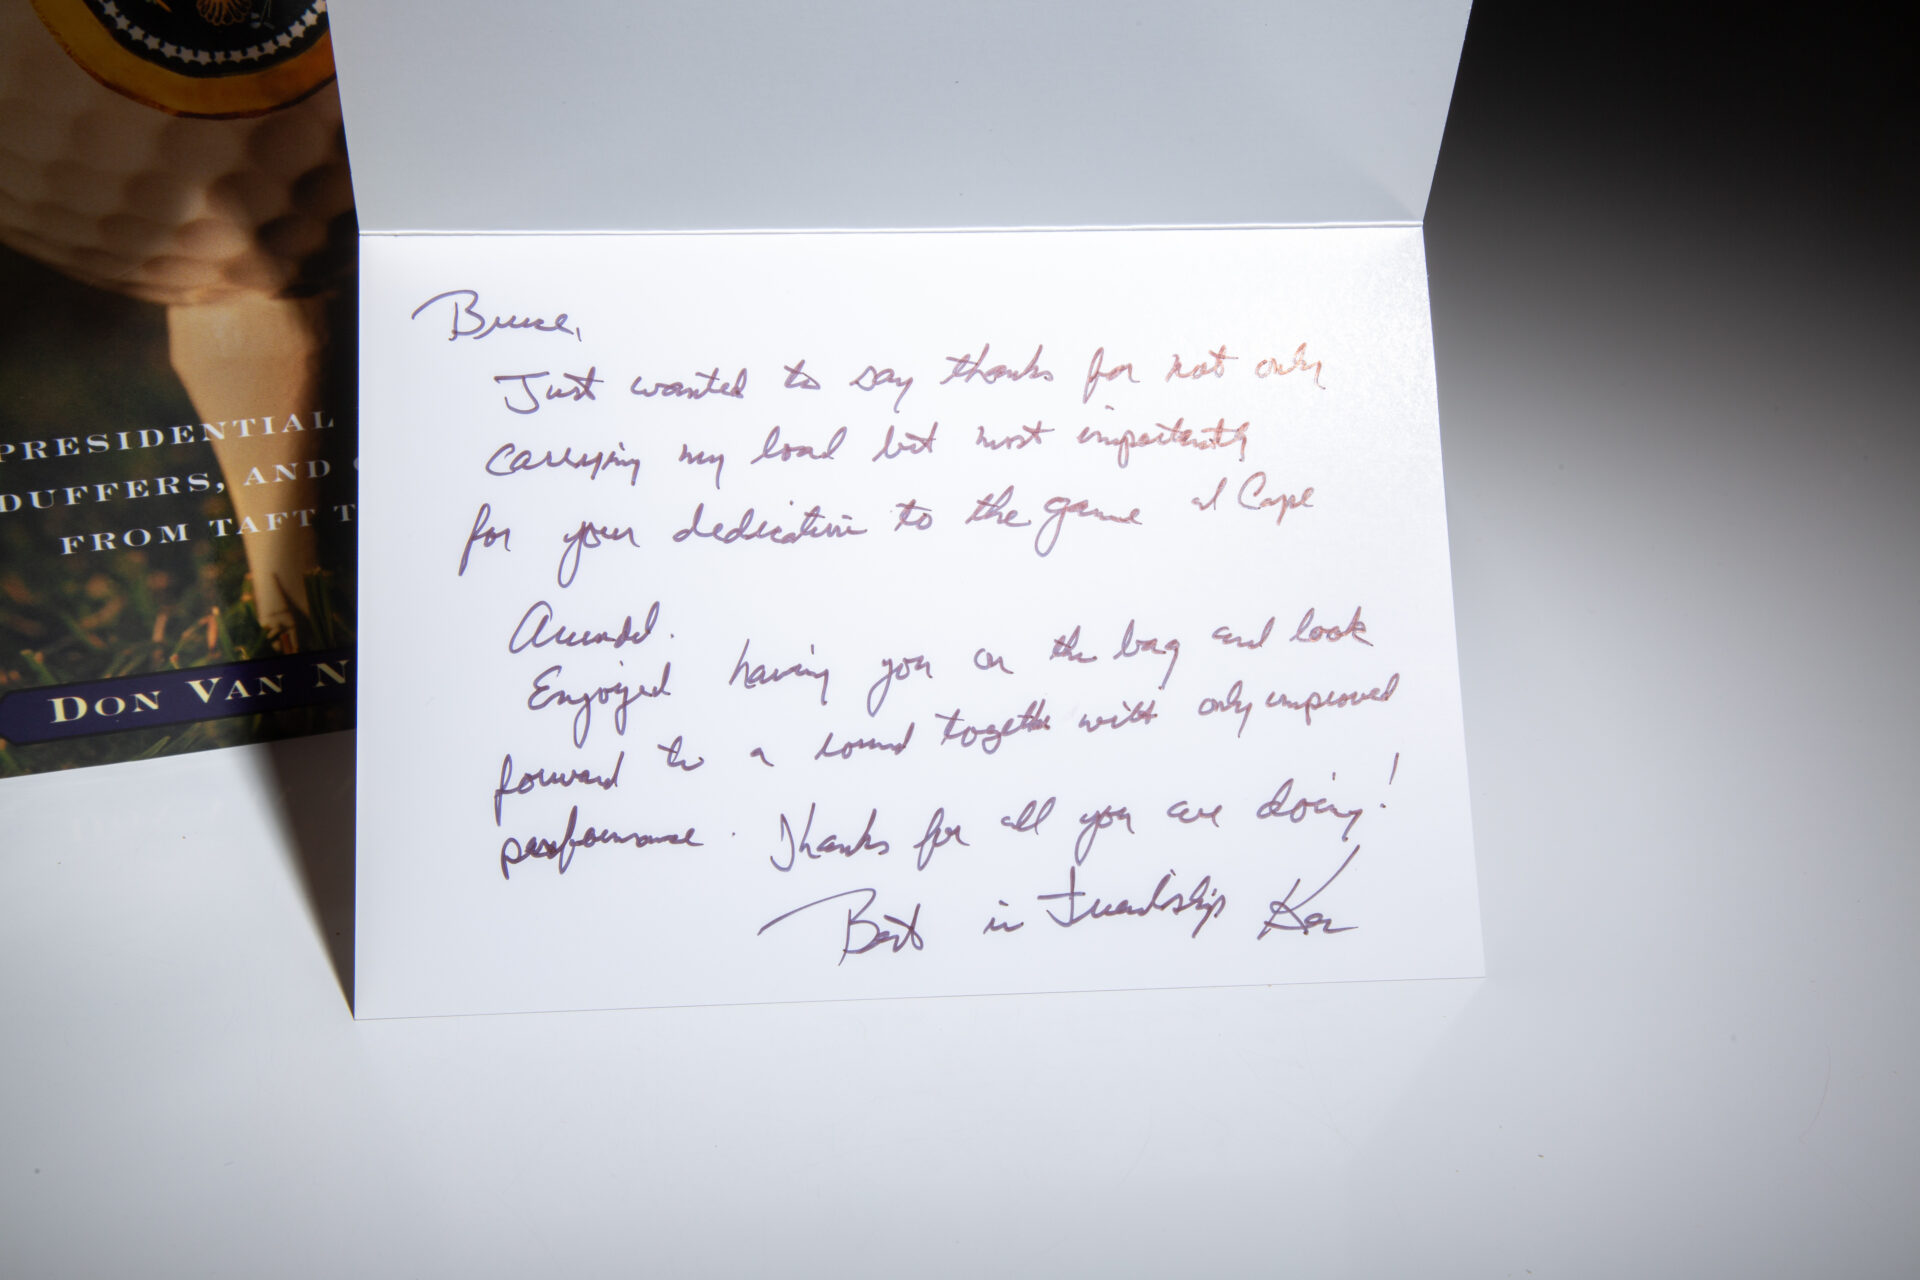 PRESIDENTIAL
DUFFERS, AND
FROM TAFT T
DON VAN N
Bruce,
Just wanted to say thanks for not only
carrying my load but most importantly
for your dedication to the game at Cape
Arundel.
Enjoyed having you on the bag and look
forward to a round together with only improved
performance. Thanks for all you are doing!
Best in Friendship Ken